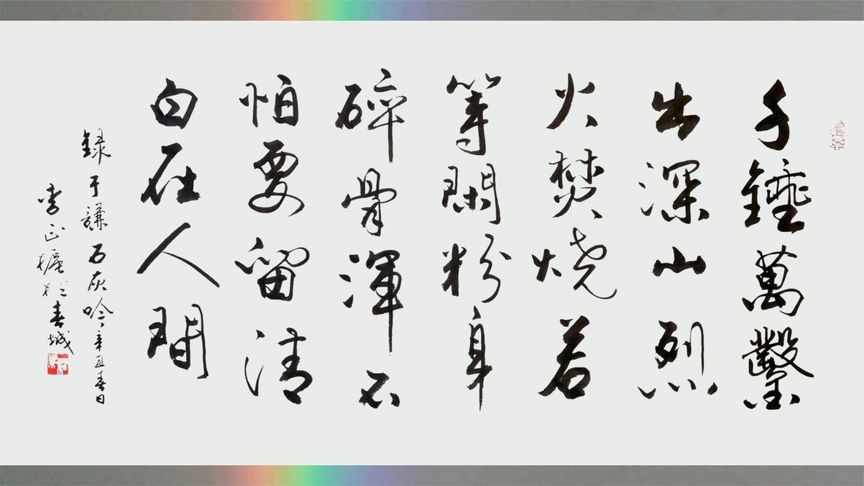 千錘萬鑿
出深山烈
火焚烧若
等閑粉身
碎骨渾不
怕要留清
白在人間
録于謙石灰吟辛丑春日
李正於春城